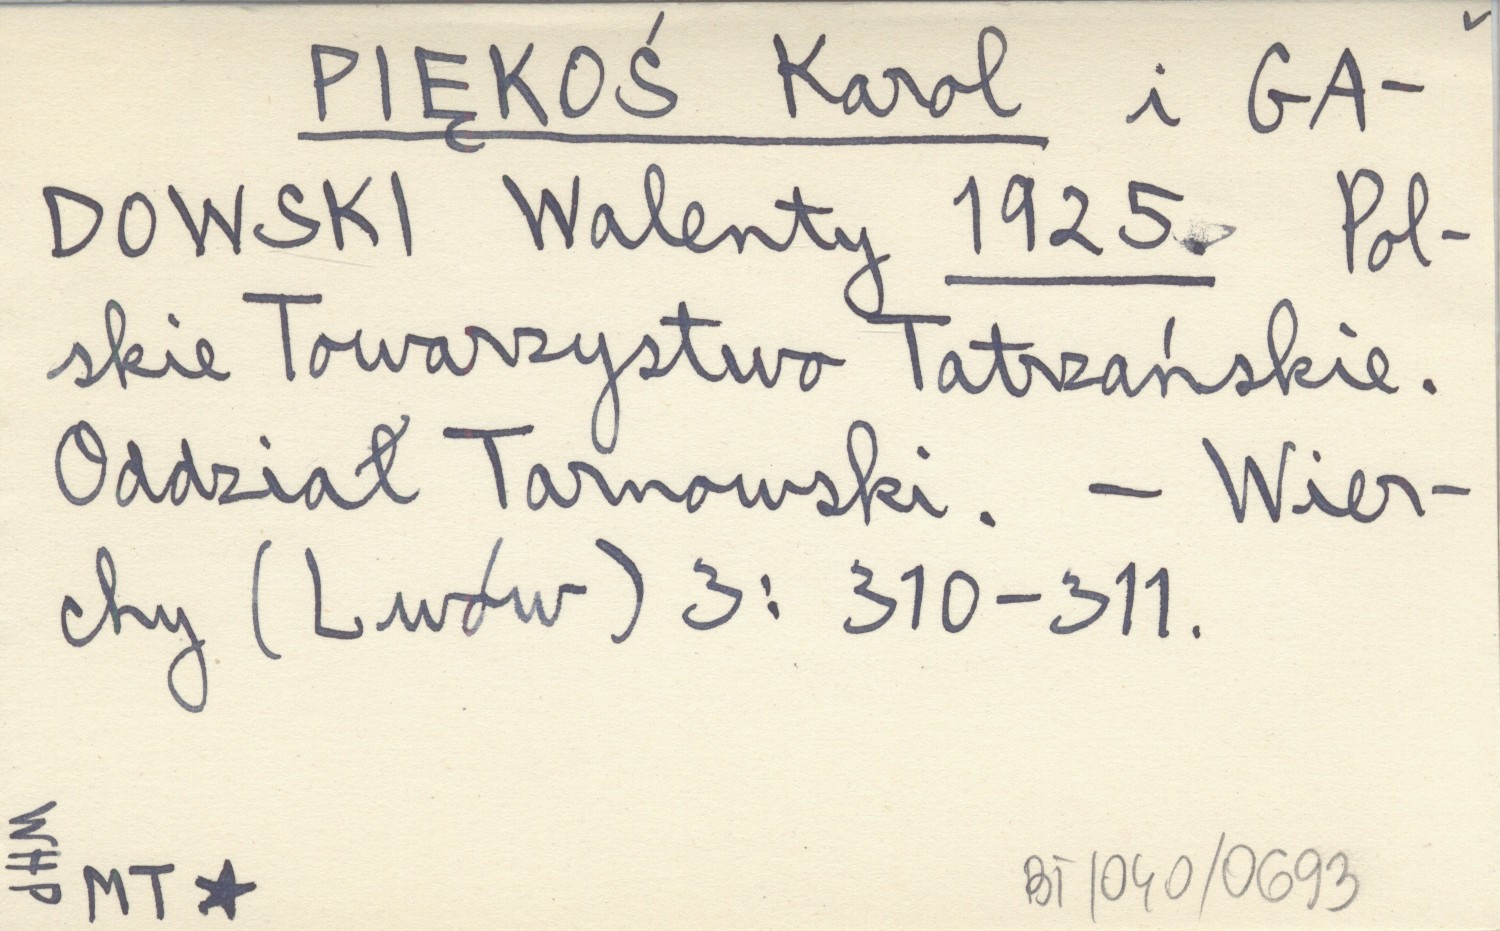 PIĘKOŚ Karol i GA-
DOWSKI Walenty 1925. Pol-
skie Towarzystwo Tatrzańskie.
Oddział Tarnowski. - Wier-
chy (Lwów) 3: 310-311.
WHP
MT ★
BT/040/0693